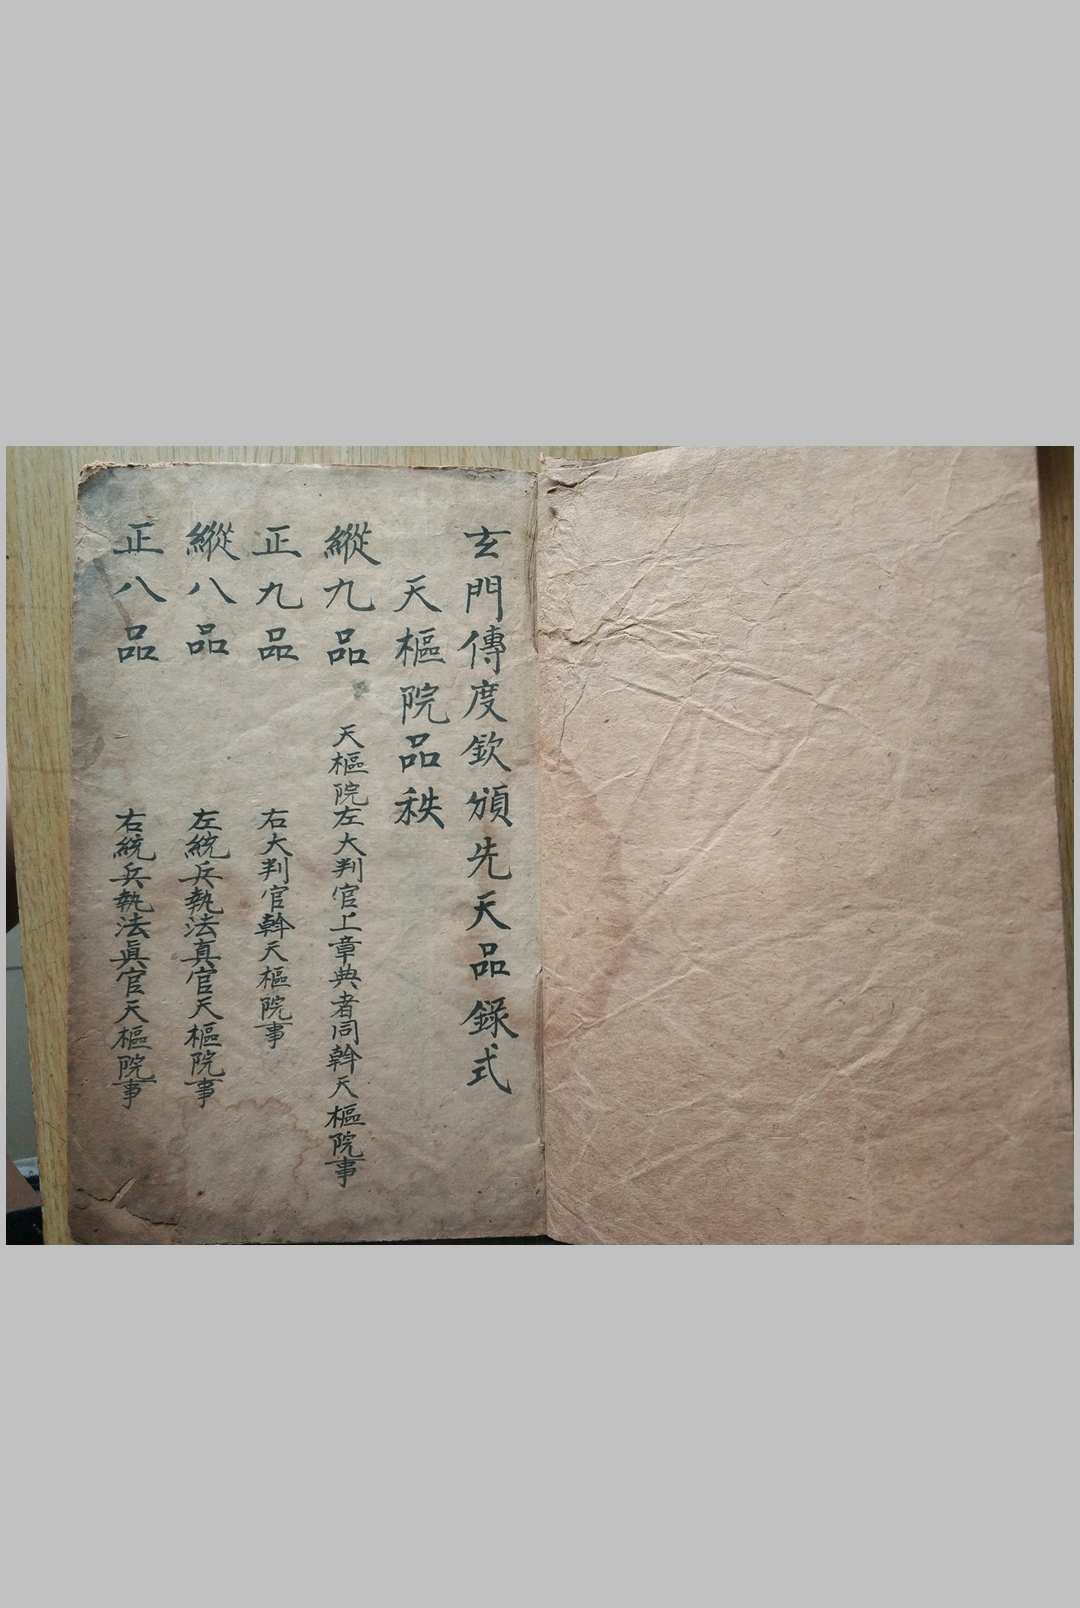 玄門傳度欽頒先天品錄式
天樞院品秩
縱九品 天樞院左大判官上章典者同斡天樞院事
正九品 右大判官斡天樞院事
縱八品 左統兵執法真官天樞院事
正八品 右統兵執法眞官天樞院事